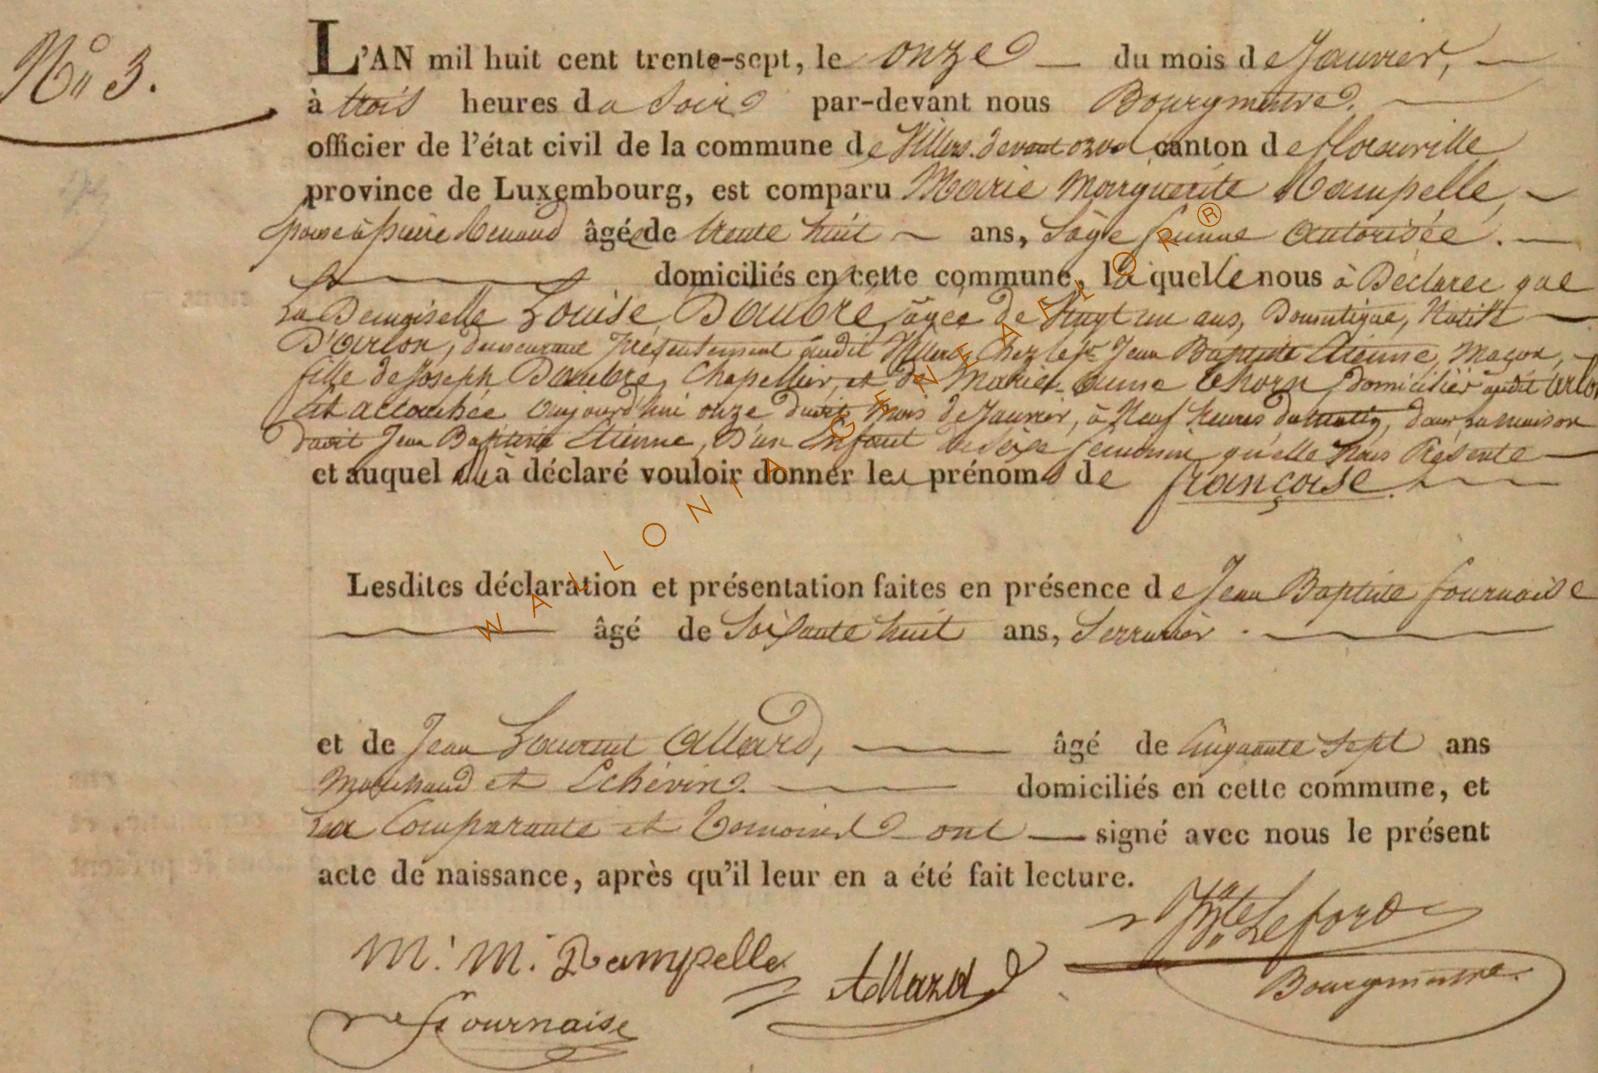 N° 3.
L'AN mil huit cent trente-sept, le onze du mois de Janvier,
à trois heures du Soir par-devant nous Bourgmestre.
officier de l'état civil de la commune de Villers devant orval canton de florenville
province de Luxembourg, est comparu Marie Marguerite Rampelle,
épouse à pierre Renaud âgée de trente huit ans, Sage femme autorisée.
domiciliés en cette commune, la quelle nous à Déclarée que
La Demoiselle Louise Daubre, âgée de Vingt un ans, Domestique, Native
D'arlon, demeurant présentement audit Villers, Chez le sr Jean Baptiste Etienne, Maçon,
fille de Joseph Daubre, Chapellier, et de Marie anne thorn, domicilier audit arlon
est accouchée aujourd'hui onze dudit Mois de Janvier, à Neuf heures du matin, dans la maison
dudit Jean Baptiste Etienne, D'un Enfant de sexe feminin qu'elle Nous Présente
et auquel elle à déclaré vouloir donner les prénoms de françoise.
Lesdites déclaration et présentation faites en présence de Jean Baptiste fournaise
âgé de Soixante huit ans, Serrurier.
et de Jean Laurent Allard, âgé de Cinquante Sept ans
Marchand et Echévin. domiciliés en cette commune, et
La Comparante et temoins ont signé avec nous le présent
acte de naissance, après qu'il leur en a été fait lecture.
M. M. Rampelle Allard Bte Leford
Bourgmestre.
fournaise
WALLONIA GENEAFLOR®